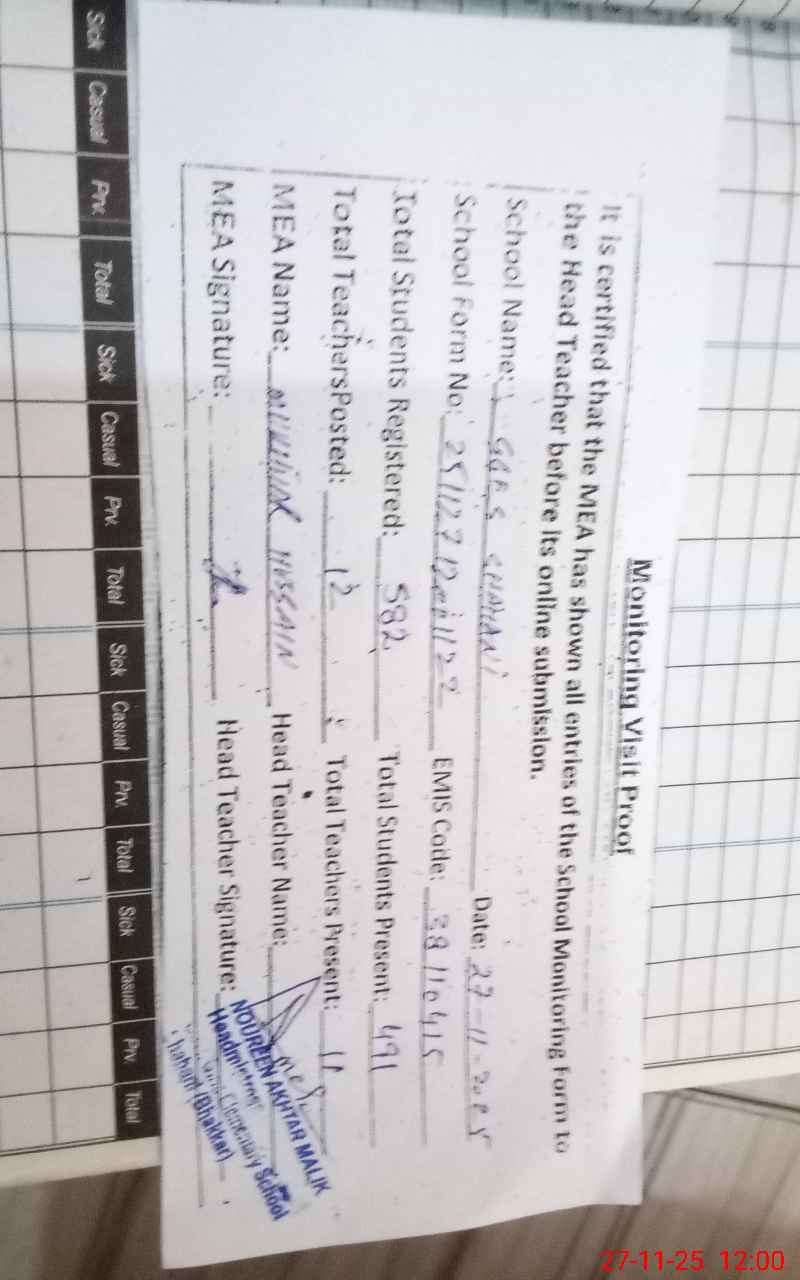 Monitoring Visit Proof
It is certified that the MEA has shown all entries of the School Monitoring Form to
the Head Teacher before its online submission.
School Name: GGES CHAHANI Date: 27-11-2025
School Form No: EMIS Code: 38110415
Total Students Registered: 582 Total Students Present: 491
Total TeachersPosted: 12 Total Teachers Present: 11
MEA Name: HUSSAIN Head Teacher Name:
MEA Signature: Head Teacher Signature:
NOUREEN AKHTAR MALIK
Headmistress
Elementary School
(Bhakkar)
Sick Casual Prv. Total Sick Casual Prv. Total Sick Casual Prv. Total Sick Casual Prv. Total
27-11-25 12:00